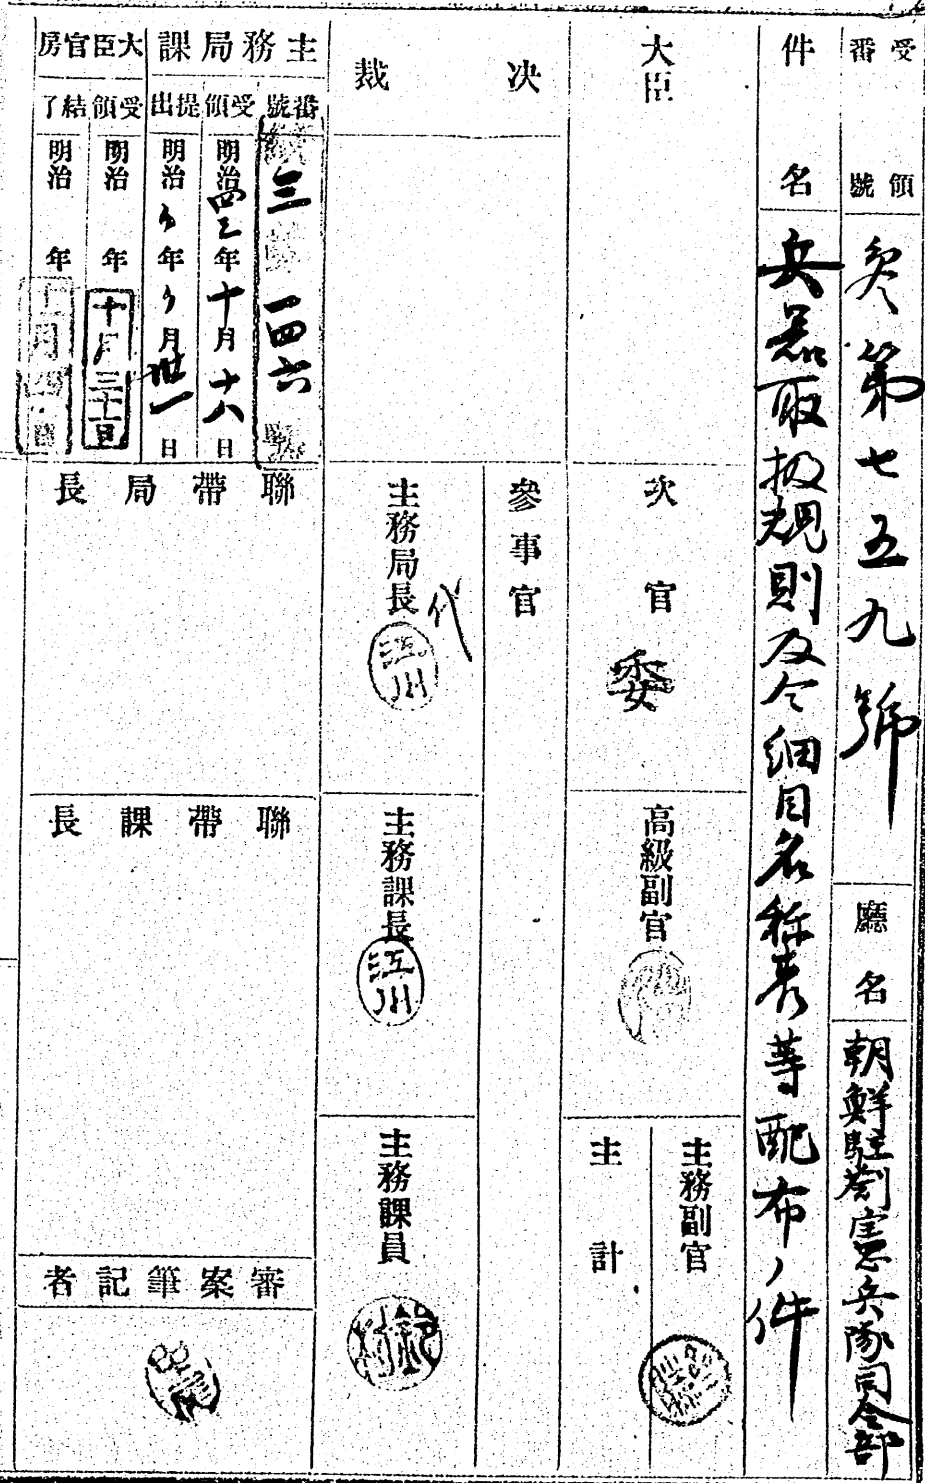 受領番號
第七五九號
廳名
朝鮮駐劄憲兵隊司令部
件名
兵器取扱規則及仝細目名称表等配布ノ件
大臣
次官
委
高級副官
主務副官
主計
決裁
參事官
主務局長
代
江川
主務課長
江川
主務課員
主務局課
番號
三
一四六
受領
明治四三年十月十八日
提出
明治 年 月卅一日
大臣官房
受領
明治 年十月三十一日
結了
明治 年
聯帶局長
聯帶課長
審案筆記者